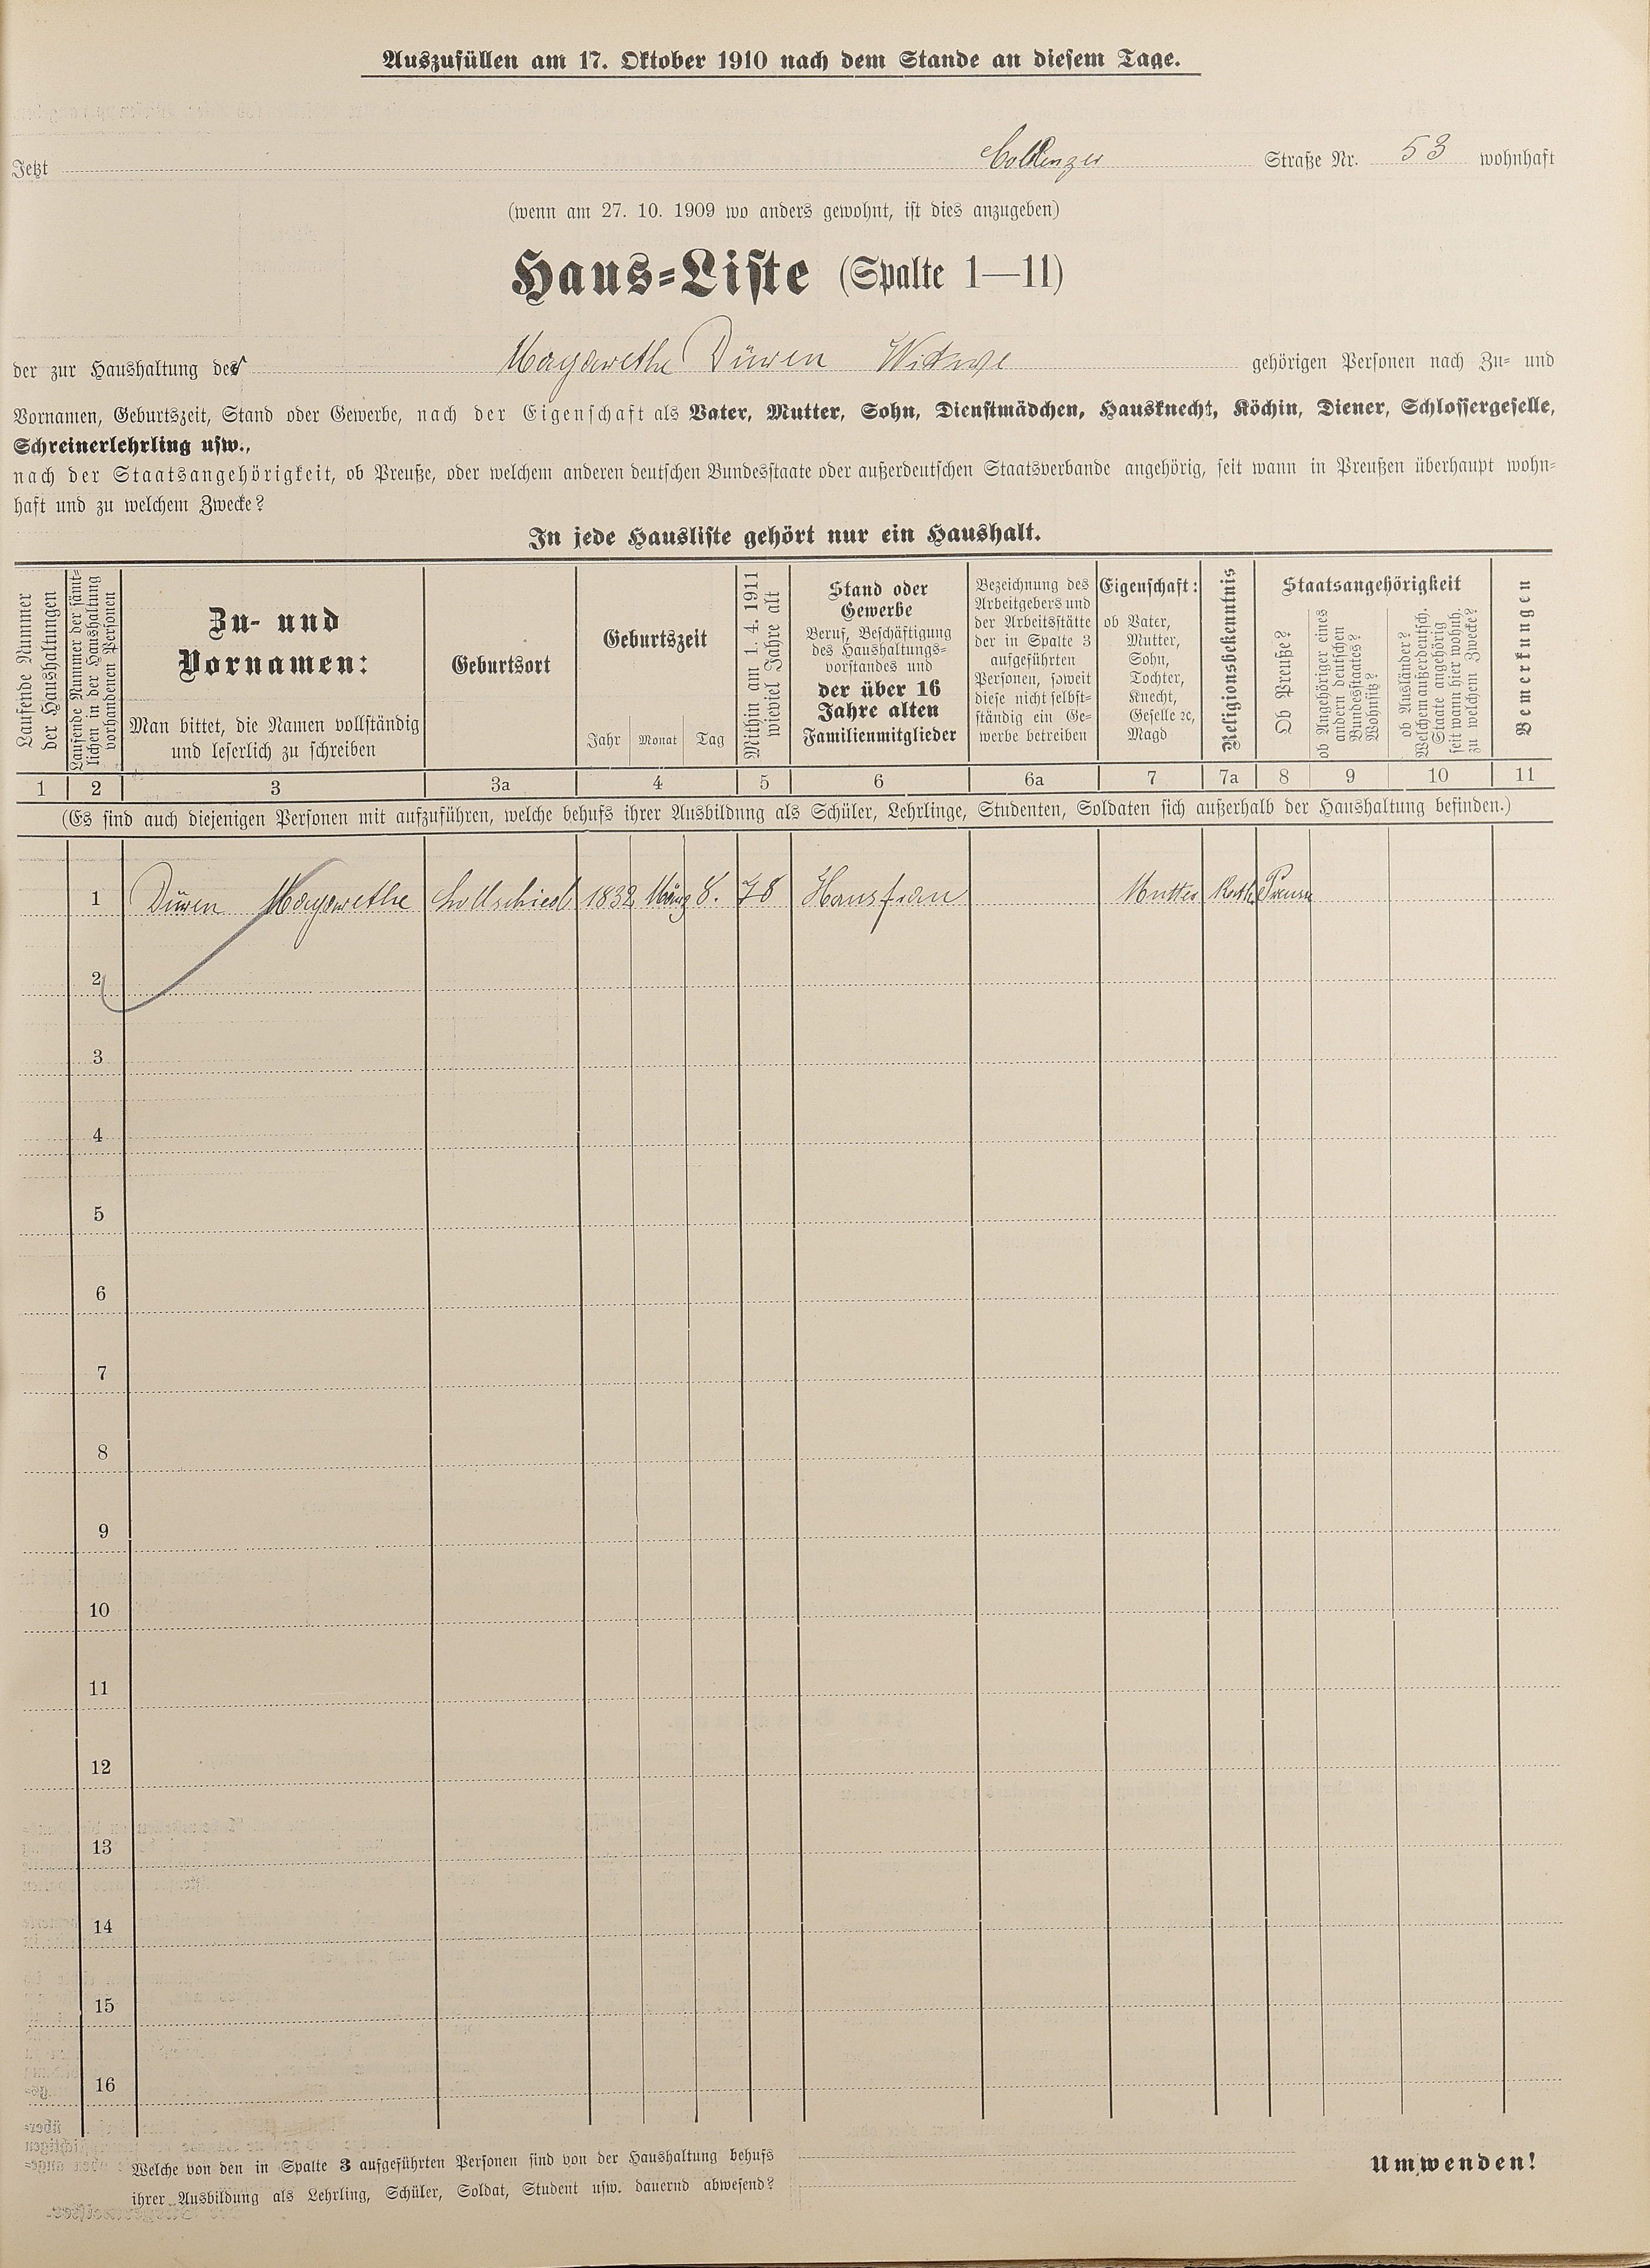 Auszufüllen am 17. Oktober 1910 nach dem Stande an diesem Tage.
Jetzt Coblenzer Straße Nr. 53 wohnhaft
(wenn am 27. 10. 1909 wo anders gewohnt, ist dies anzugeben)
Haus-Liste (Spalte 1—11)
der zur Haushaltung der Margarethe Düren Witwe gehörigen Personen nach Zu- und
Vornamen, Geburtszeit, Stand oder Gewerbe, nach der Eigenschaft als Vater, Mutter, Sohn, Dienstmädchen, Hausknecht, Köchin, Diener, Schlossergeselle,
Schreinerlehrling usw.,
nach der Staatsangehörigkeit, ob Preuße, oder welchem anderen deutschen Bundesstaate oder außerdeutschen Staatsverbande angehörig, seit wann in Preußen überhaupt wohn-
haft und zu welchem Zwecke?
In jede Hausliste gehört nur ein Haushalt.
Laufende Nummer
der Haushaltungen
Laufende Nummer der sämt-
lichen in der Haushaltung
vorhandenen Personen
Zu- und
Vornamen:
Man bittet, die Namen vollständig
und leserlich zu schreiben
Geburtsort
Geburtszeit
Jahr Monat Tag
Mithin am 1. 4. 1911
wieviel Jahre alt
Stand oder
Gewerbe
Beruf, Beschäftigung
des Haushaltungs-
vorstandes und
der über 16
Jahre alten
Familienmitglieder
Bezeichnung des
Arbeitgebers und
der Arbeitsstätte
der in Spalte 3
aufgeführten
Personen, soweit
diese nicht selbst-
ständig ein Ge-
werbe betreiben
Eigenschaft:
ob Vater,
Mutter,
Sohn,
Tochter,
Knecht,
Geselle ꝛc,
Magd
Religionsbekenntnis
Staatsangehörigkeit
Ob Preuße?
ob Angehöriger eines
andern deutschen
Bundesstaates?
Wohnsitz?
ob Ausländer?
Welchem außerdeutsch.
Staate angehörig
seit wann hier wohnh.
zu welchem Zwecke?
Bemerkungen
1 2 3 3a 4 5 6 6a 7 7a 8 9 10 11
(Es sind auch diejenigen Personen mit aufzuführen, welche behufs ihrer Ausbildung als Schüler, Lehrlinge, Studenten, Soldaten sich außerhalb der Haushaltung befinden.)
1 Düren Margarethe 1832 März 8. 78 Hausfrau Mutter Kath. Preuße
2
3
4
5
6
7
8
9
10
11
12
13
14
15
16
Welche von den in Spalte 3 aufgeführten Personen sind von der Haushaltung behufs
ihrer Ausbildung als Lehrling, Schüler, Soldat, Student usw. dauernd abwesend?
Umwenden!